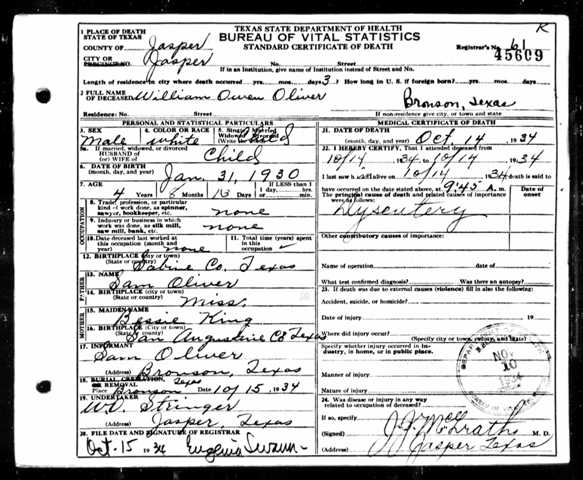 K
TEXAS STATE DEPARTMENT OF HEALTH
BUREAU OF VITAL STATISTICS
STANDARD CERTIFICATE OF DEATH
1 PLACE OF DEATH
STATE OF TEXAS
COUNTY OF Jasper
CITY OR
PRECINCT NO. Jasper
No. Street
Registrar's No. 61
45609
If in an Institution, give name of Institution instead of Street and No.
Length of residence in city where death occurred yrs. mos. days 3 ? How long in U. S. if foreign born? yrs. mos. days
2 FULL NAME
OF DECEASED William Owen Oliver
Bronson, Texas
Residence: No. Street
If non-residence give city, or town and state
PERSONAL AND STATISTICAL PARTICULARS
3. SEX Male
4. COLOR OR RACE white
5. Single, Married
Child
5a. If married, widowed, or divorced
HUSBAND OF
(or) WIFE OF Child
6. DATE OF BIRTH
(month, day, and year) Jan. 31, 1930
7. AGE 4 Years 8 Months 13 Days
If LESS than
1 day, hrs.
or min.
OCCUPATION
8. Trade, profession, or particular
kind of work done, as spinner,
sawyer, bookkeeper, etc. none
9. Industry or business in which
work was done, as silk mill,
saw mill, bank, etc. none
10. Date deceased last worked at
this occupation (month and
year) none
11. Total time (years)
spent in this
occupation
12. BIRTHPLACE (city or town)
(State or country) Sabine Co. Texas
FATHER
13. NAME Sam Oliver
14. BIRTHPLACE (city or town)
(State or country) Miss.
MOTHER
15. MAIDEN NAME Bessie King
16. BIRTHPLACE (City or town)
(State or country) San Augustine Co Texas
17. INFORMANT Sam Oliver
(Address) Bronson, Texas
18. BURIAL, CREMATION,
OR REMOVAL
Place Bronson Texas Date 10/15, 1934
19. UNDERTAKER W.O. Stringer
(Address) Jasper, Texas
20. FILE DATE AND SIGNATURE OF REGISTRAR
Oct. 15 1934 Eugenia Swann
MEDICAL CERTIFICATE OF DEATH
21. DATE OF DEATH
(month, day, and year) Oct 14, 1934
22. I HEREBY CERTIFY, That I attended deceased from
10/14 1934 to 10/14 1934
I last saw h alive on 10/14 1934 death is said to
have occurred on the date stated above, at 9:45 A. m.
The principal cause of death and related causes of importance
were as follows:
Date of
onset
Dysentery
Other contributory causes of importance:
Name of operation date of
What test confirmed diagnosis? Was there an autopsy?
23. If death was due to external causes (violence) fill in also the following:
Accident, suicide, or homicide? Date of injury 19
Where did injury occur?
(Specify city or town, county, and State)
Specify whether injury occurred in in-
dustry, in home, or in public place.
Manner of injury
Nature of injury
24. Was disease or injury in any way
related to occupation of deceased?
If so, specify
(Signed) M. D.
Jasper Texas
NOV
10
1934